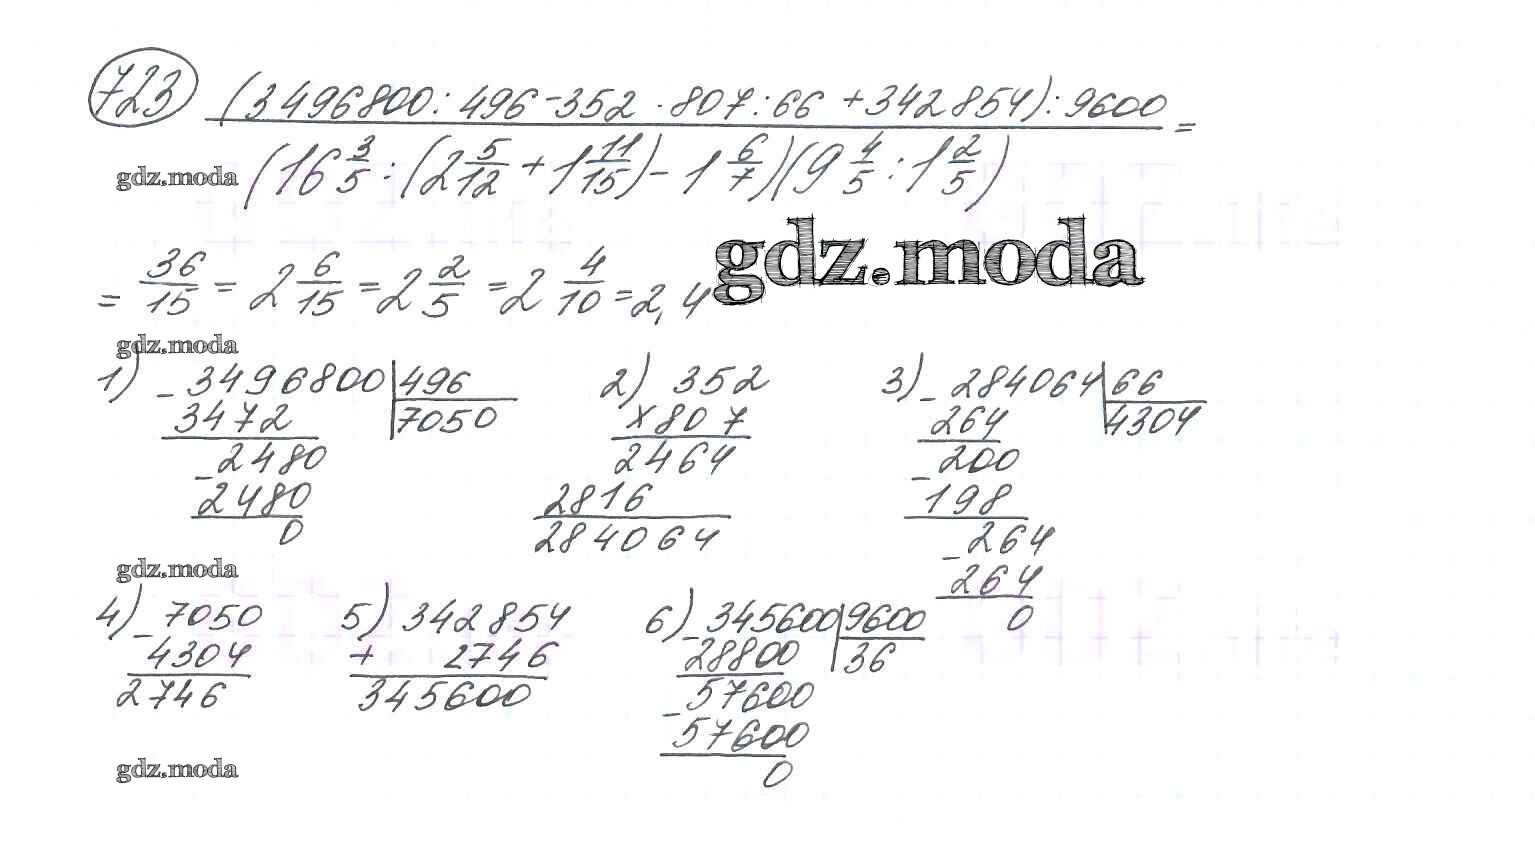 723 (3496800 : 496 - 352 · 807 : 66 + 342854) : 9600 =
gdz.moda (16 3/5 : (2 5/12 + 1 11/15) - 1 6/7)(9 4/5 : 1 2/5)
gdz.moda
= 36/15 = 2 6/15 = 2 2/5 = 2 4/10 = 2,4
gdz.moda
1) - 3496800 | 496
3472 | 7050
- 2480
2480
0
2) 352
× 807
2464
2816
284064
3) - 284064 | 66
264 | 4304
- 200
198
- 264
264
0
gdz.moda
4) - 7050
4304
2746
5) 342854
+ 2746
345600
6) - 345600 | 9600
28800 | 36
- 57600
57600
0
gdz.moda